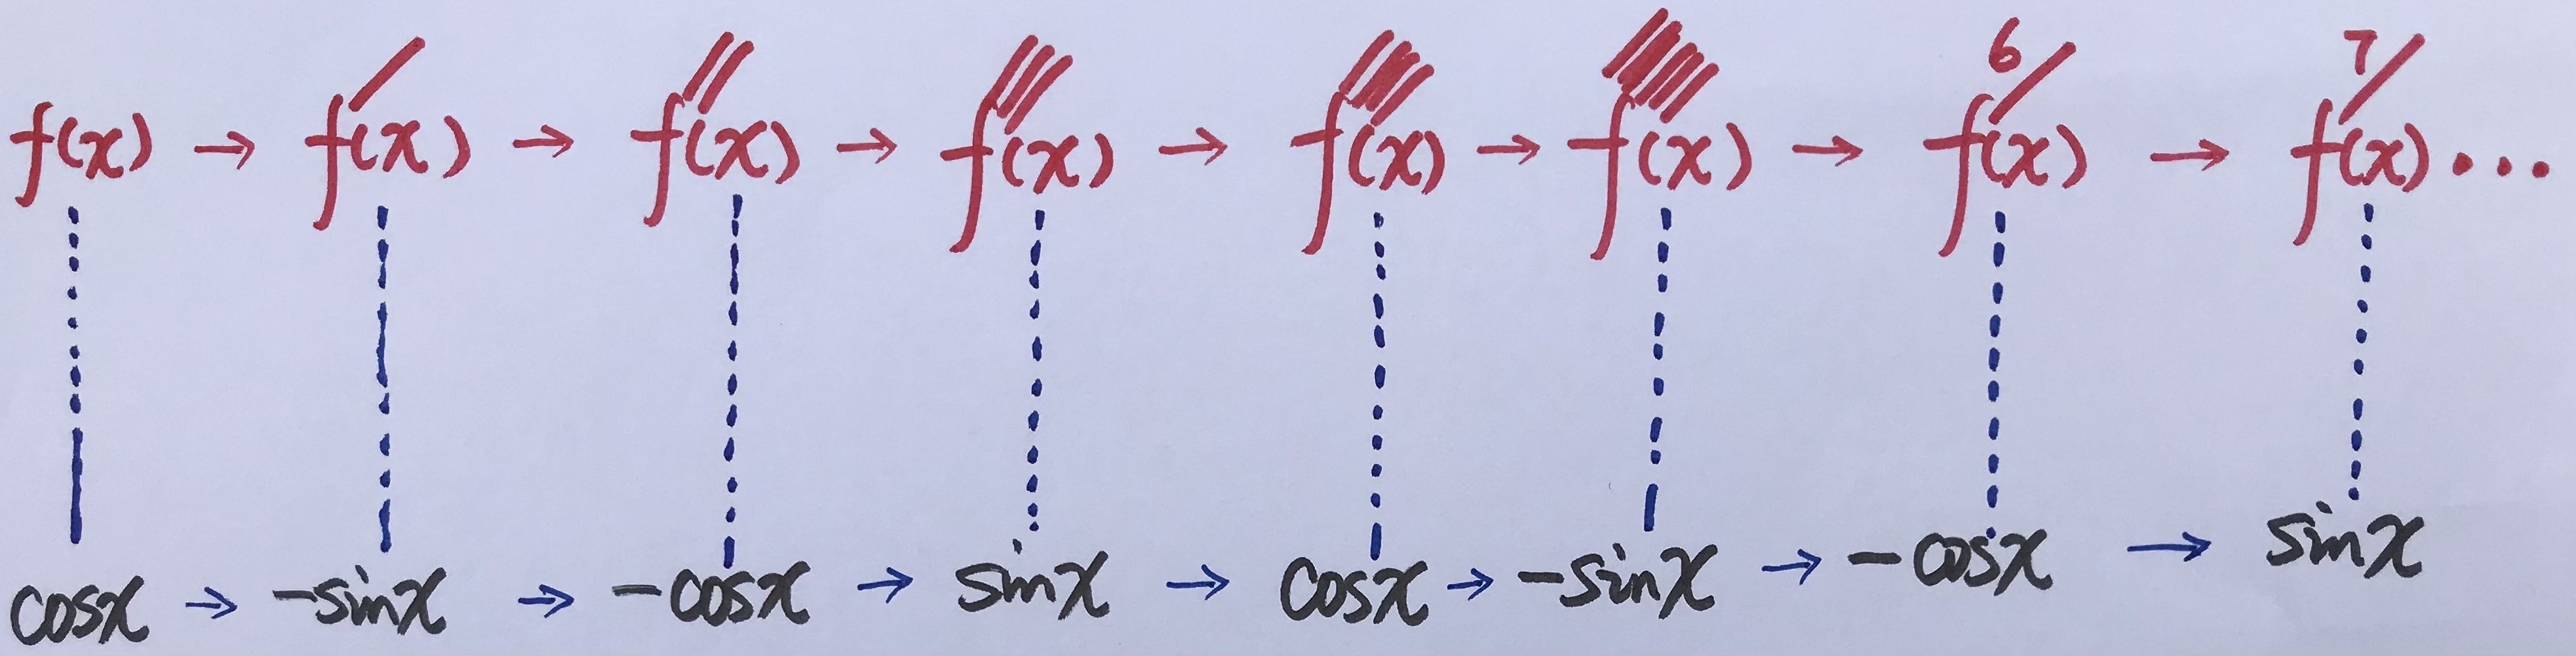 f(x) → f′(x) → f″(x) → f‴(x) → f⁗(x) → f′′′′′(x) → f⁶′(x) → f⁷′(x)...
cosx → -sinx → -cosx → sinx → cosx → -sinx → -cosx → sinx